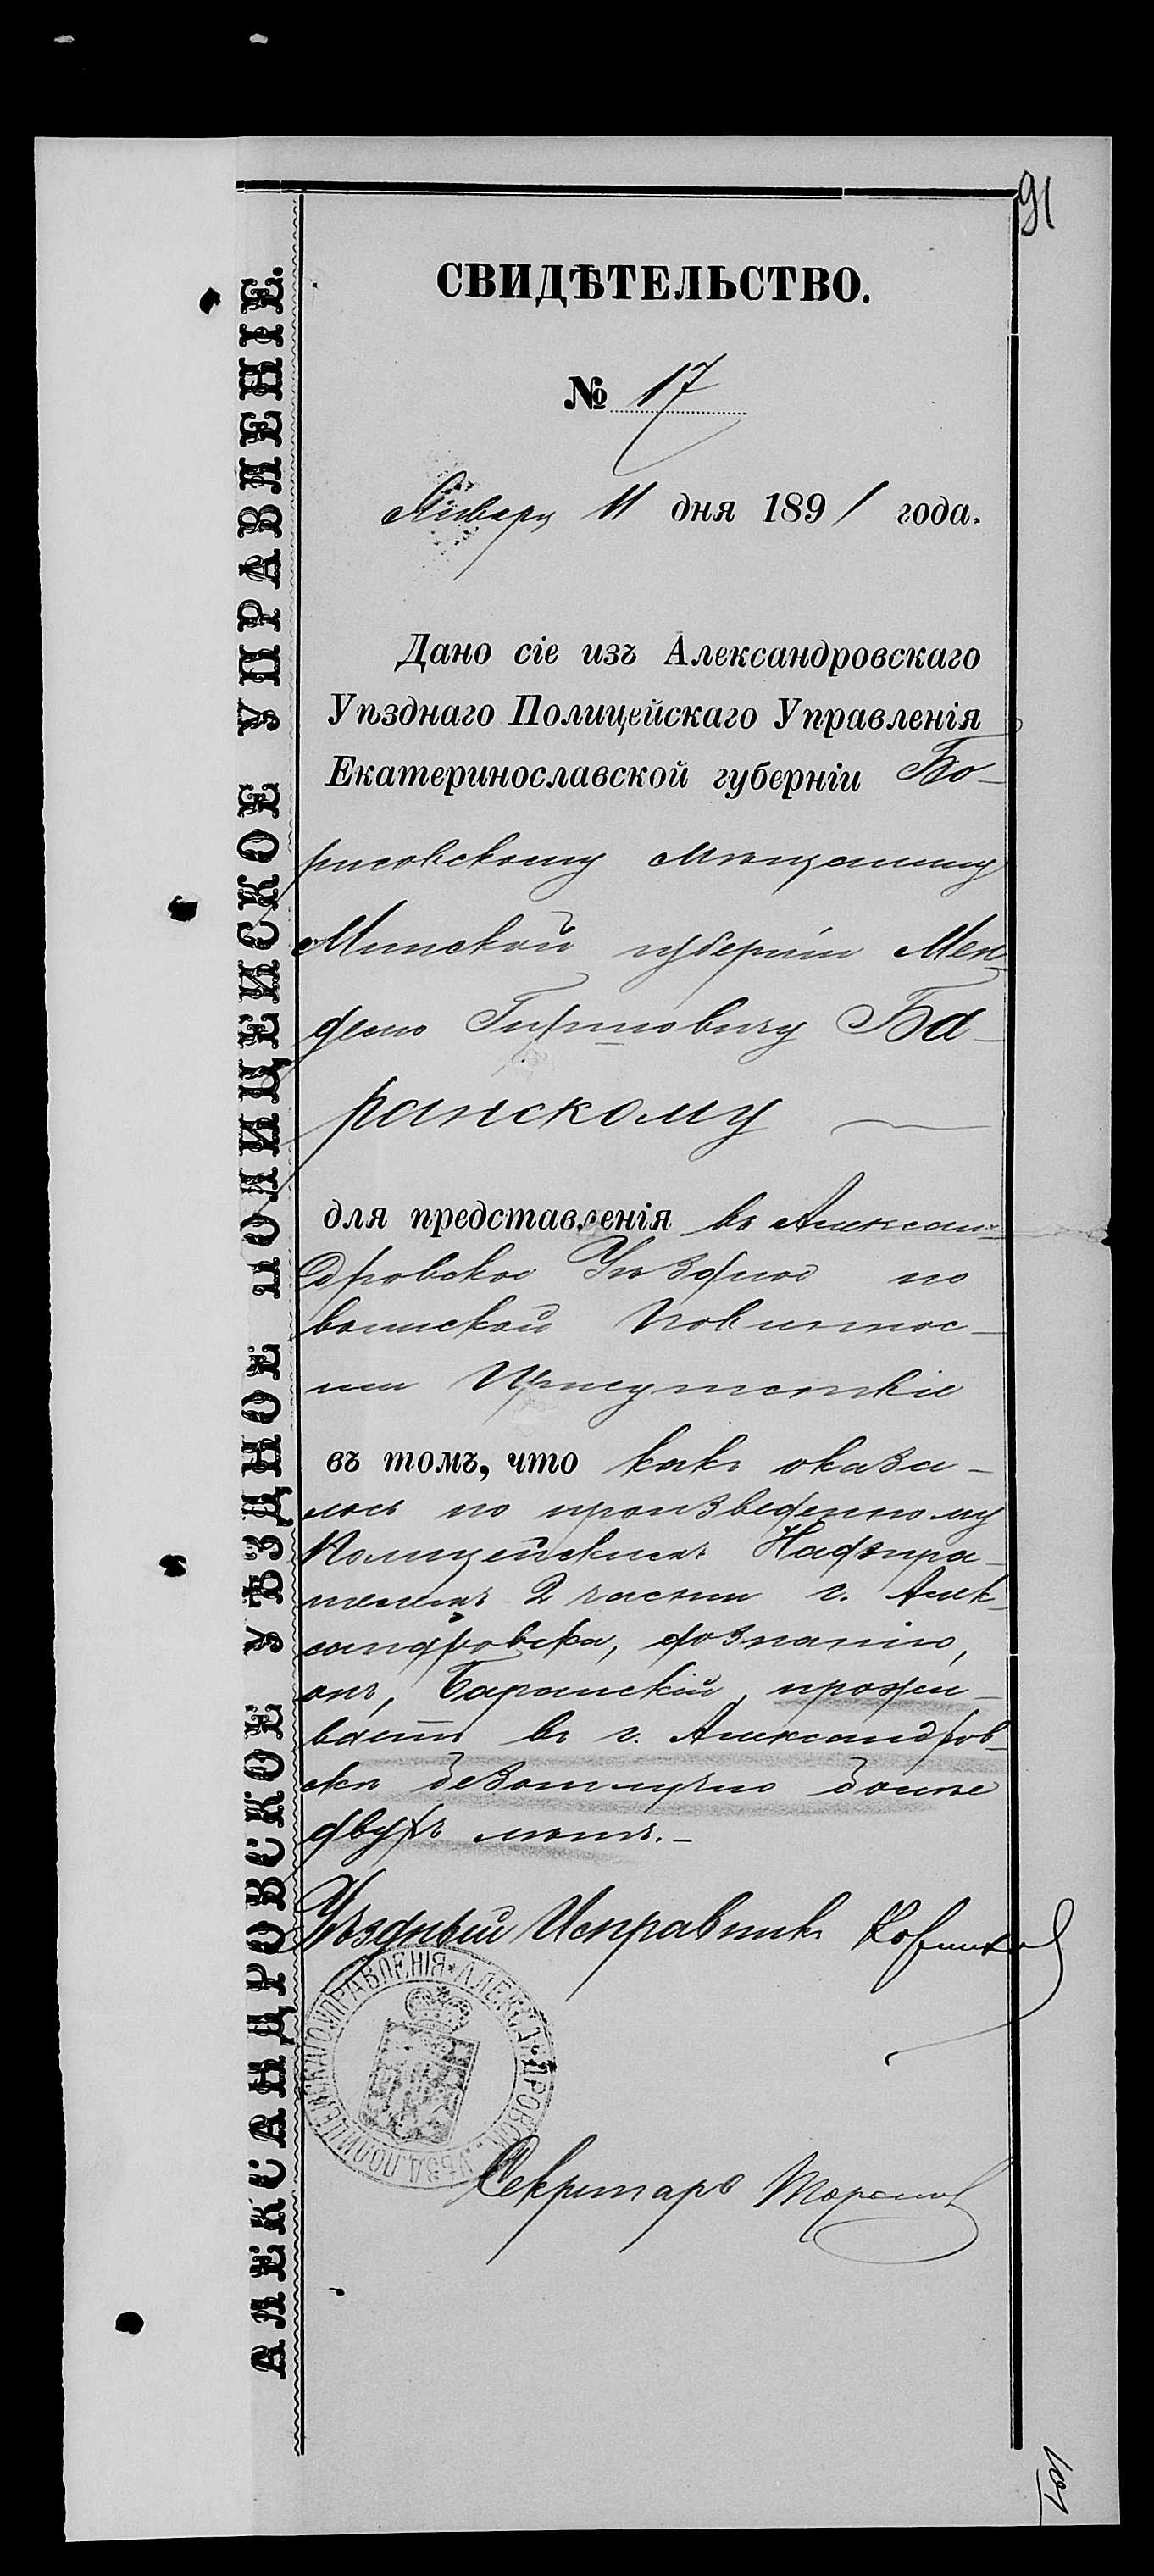 91
АЛЕКСАНДРОВСКОЕ УѢЗДНОЕ ПОЛИЦЕЙСКОЕ УПРАВЛЕНІЕ.
СВИДѢТЕЛЬСТВО.
№ 17
Января 11 дня 1891 года.
Дано сіе изъ Александровскаго
Уѣзднаго Полицейскаго Управленія
Екатеринославской губерніи Бо-
рисовскому мѣщанину
Минской губерніи Мен-
делю Гиршовичу Ба-
ранскому
для представленія въ Алексан-
дровское Уѣздное по
воинской повиннос-
ти Присутствіе
въ томъ, что какъ оказа-
лось по произведенному
Полицейскимъ Надзира-
телемъ 2 части г. Алек-
сандровска, дознанію,
онъ, Баранскій, прожи-
ваетъ въ г. Александров-
скѣ безотлучно болѣе
двухъ лѣтъ.-
Уѣздный Исправникъ
АЛЕКСАНДРОВСК. УѢЗД. ПОЛИЦЕЙСКАГО УПРАВЛЕНІЯ
Секретарь
101